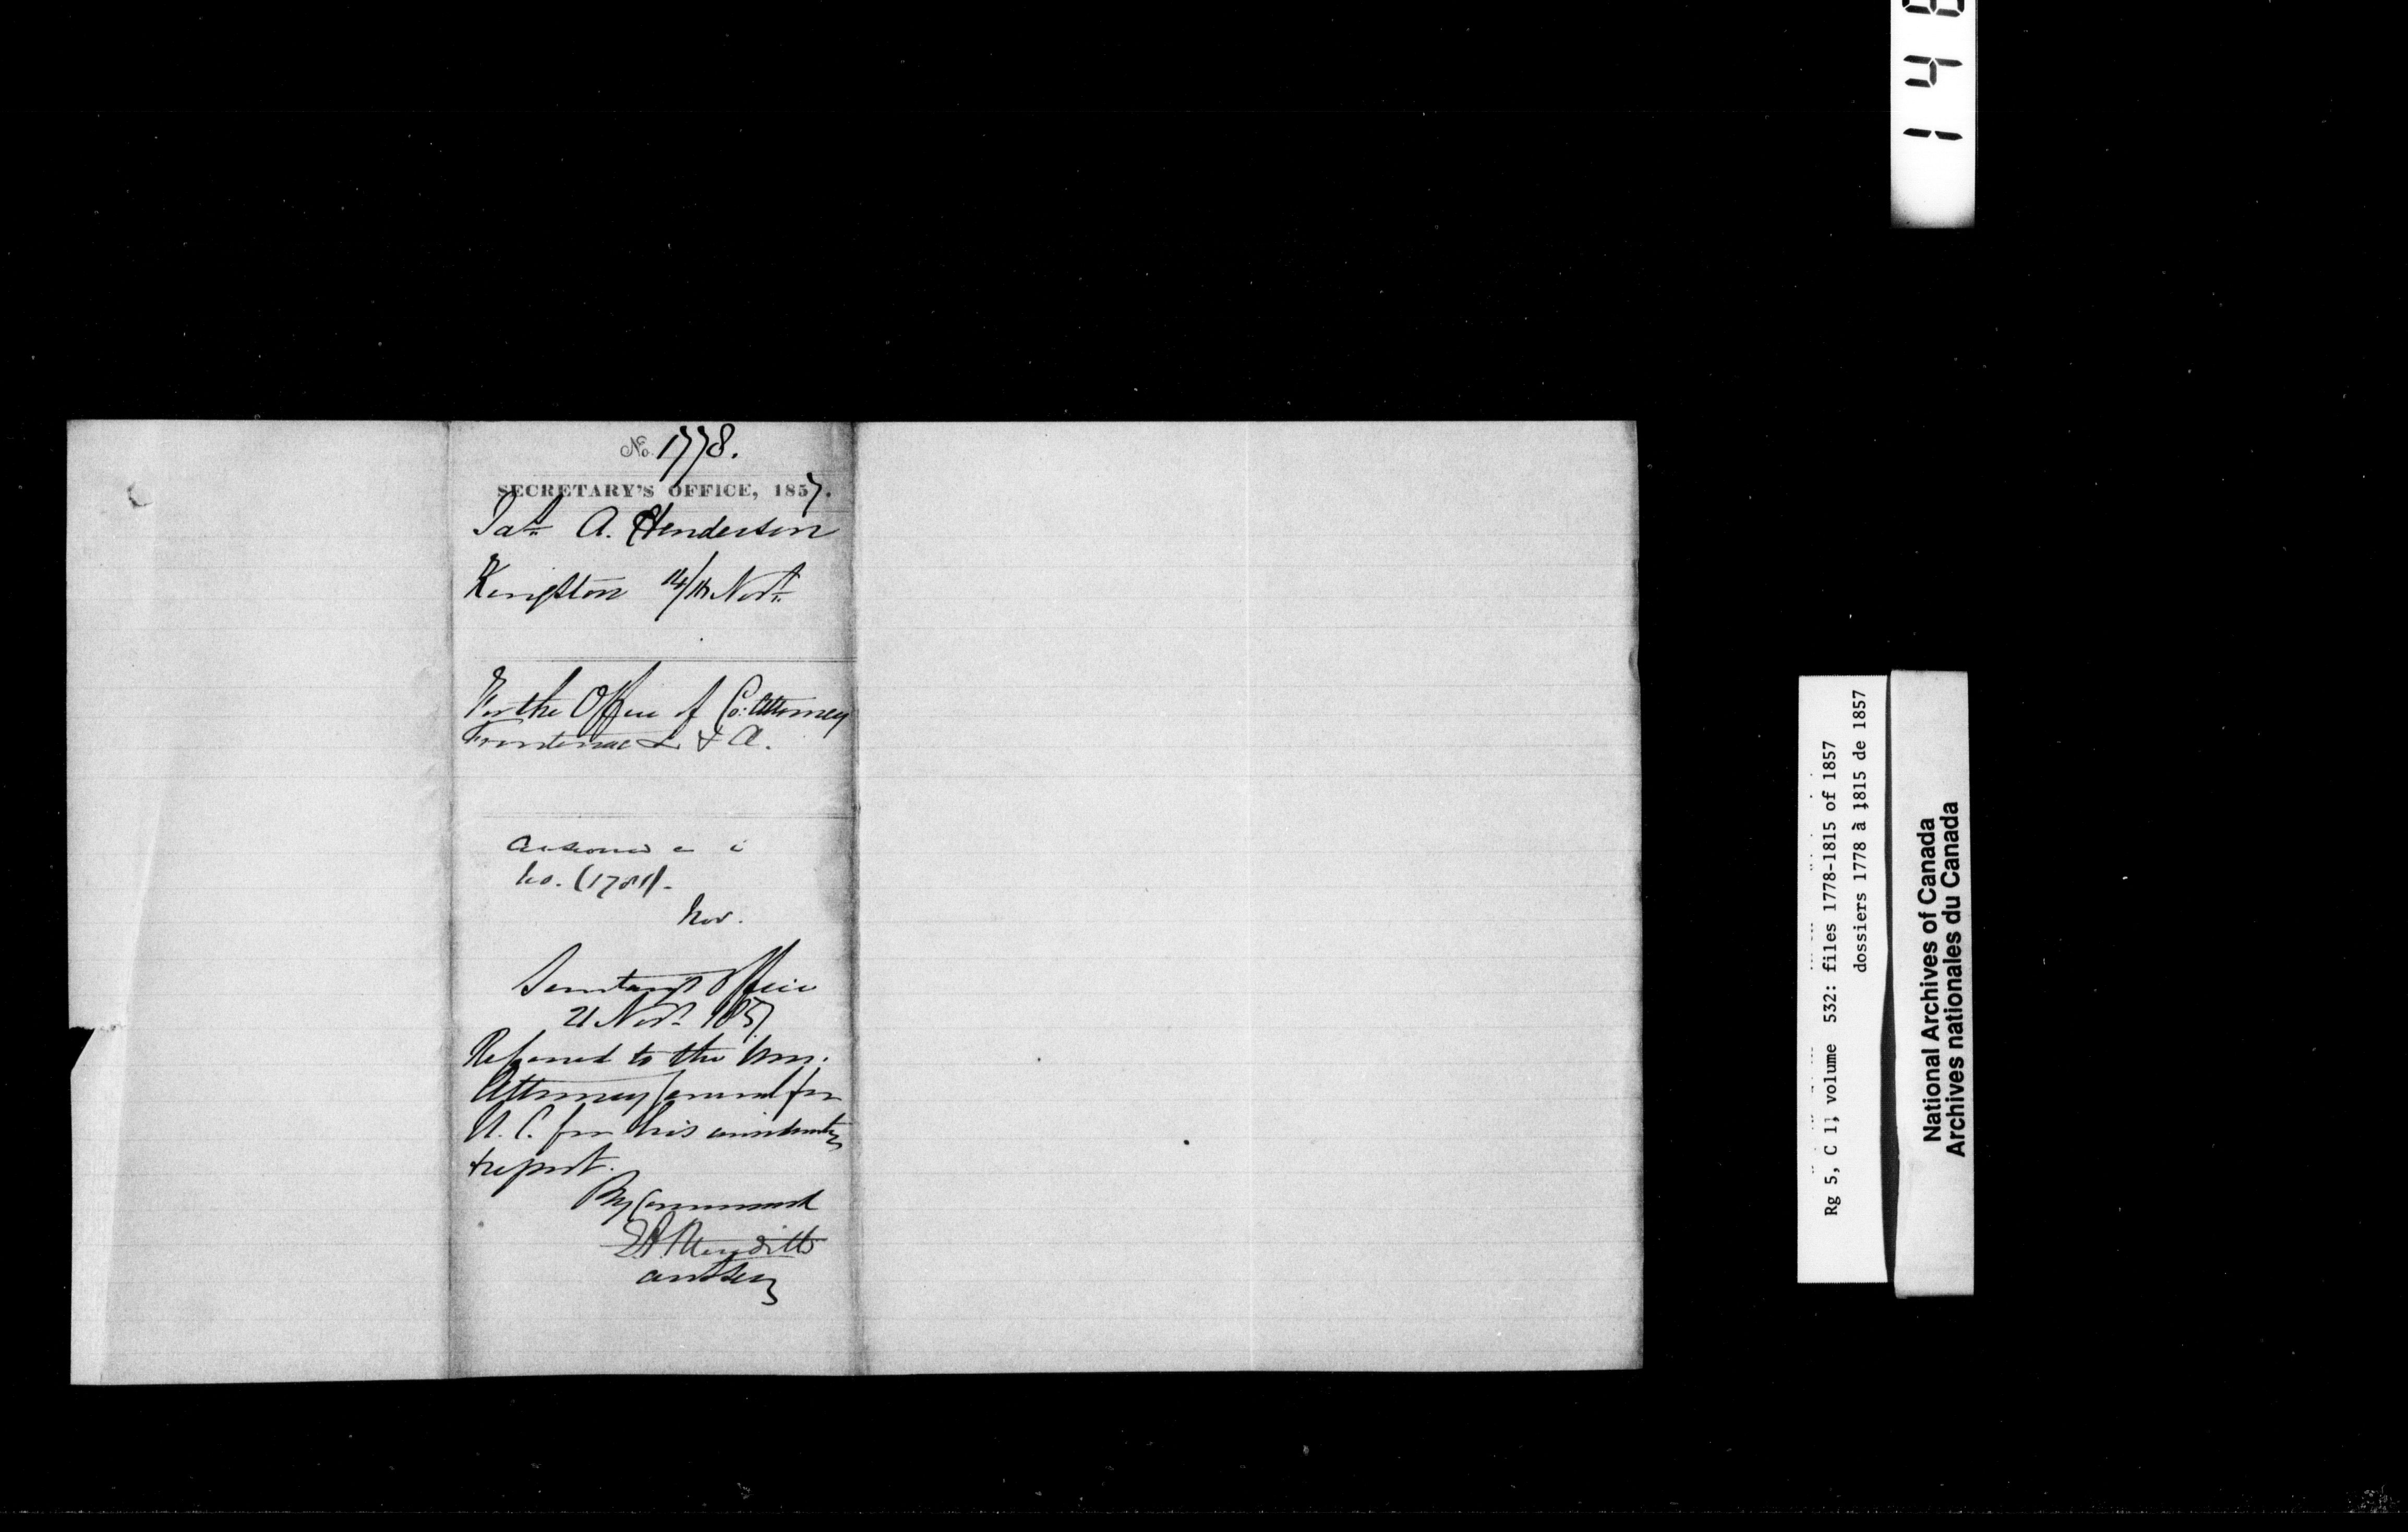 No. 1778.
SECRETARY'S OFFICE, 1857.
Jas. A. Henderson
Kingston 14/18 Novr.
For the Office of Co: Attorney
Frontenac L. & A.
Answered
No. (1781).
Nov.
Secretary's Office
21 Novr. 1857
Referred to the Hon:
Attorney General for
U. C. for his consideration
& report.
By Command
E. A. Meredith
Asst Secy
148
Rg 5, C 1, volume 532: files 1778-1815 of 1857
dossiers 1778 à 1815 de 1857
National Archives of Canada
Archives nationales du Canada